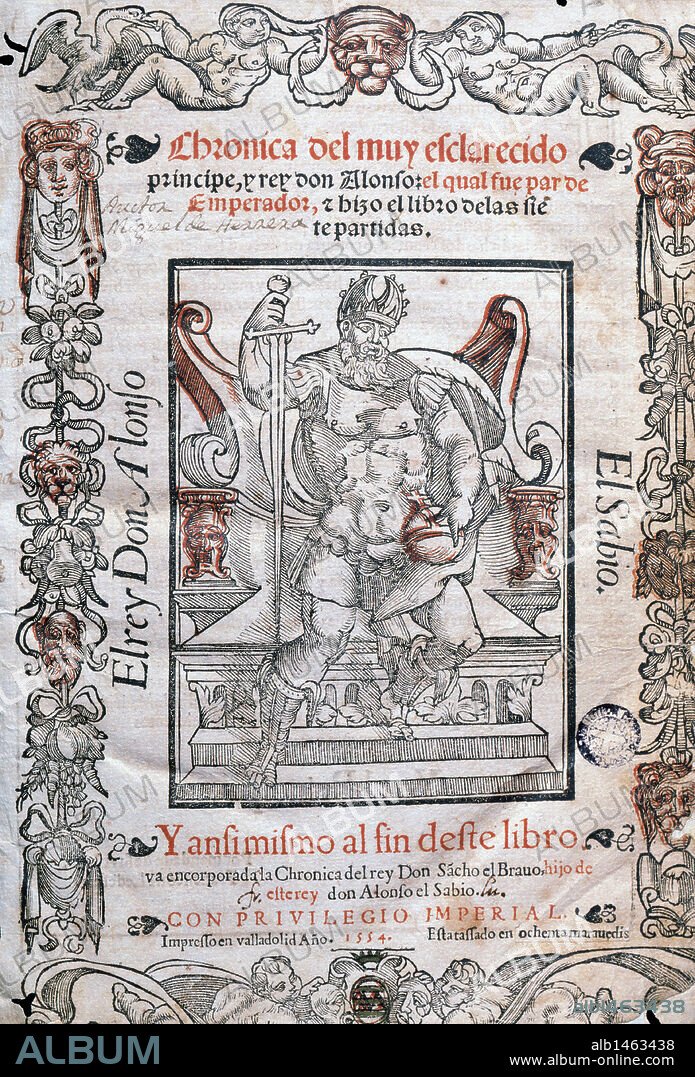 Chronica del muy esclarecido
principe, y rey don Alonso: el qual fue par de
Emperador, & hizo el libro delas siē
te partidas.
Auctor
Miguel de Herrera
El rey Don Alonso
El Sabio.
Y ansi mismo al fin deste libro
va encorporada la Chronica del rey Don Sācho el Brauo, hijo de
este rey don Alonso el Sabio.
CON PRIVILEGIO IMPERIAL.
Impresso en valladolid Año. 1554. Esta tassado en ochenta marauedis
ALBUM
alb1463438
www.album-online.com